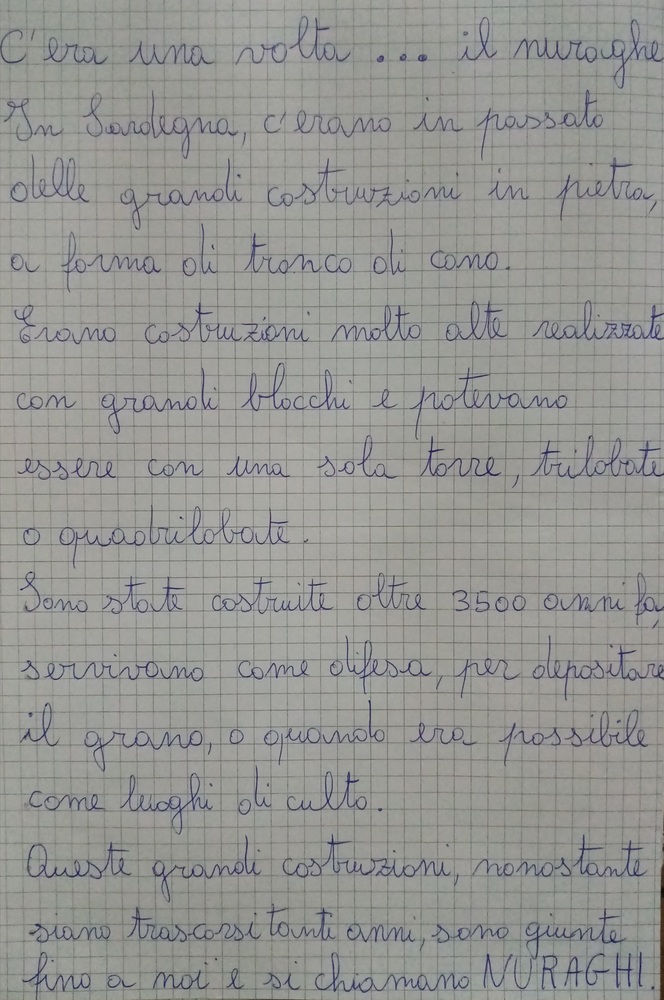 C'era una volta ... il nuraghe
In Sardegna, c'erano in passato
delle grandi costruzioni in pietra,
a forma di tronco di cono.
Erano costruzioni molto alte realizzate
con grandi blocchi e potevano
essere con una sola torre, trilobate
o quadrilobate.
Sono state costruite oltre 3500 anni fa,
servivano come difesa, per depositare
il grano, o quando era possibile
come luoghi di culto.
Queste grandi costruzioni, nonostante
siano trascorsi tanti anni, sono giunte
fino a noi e si chiamano NURAGHI.